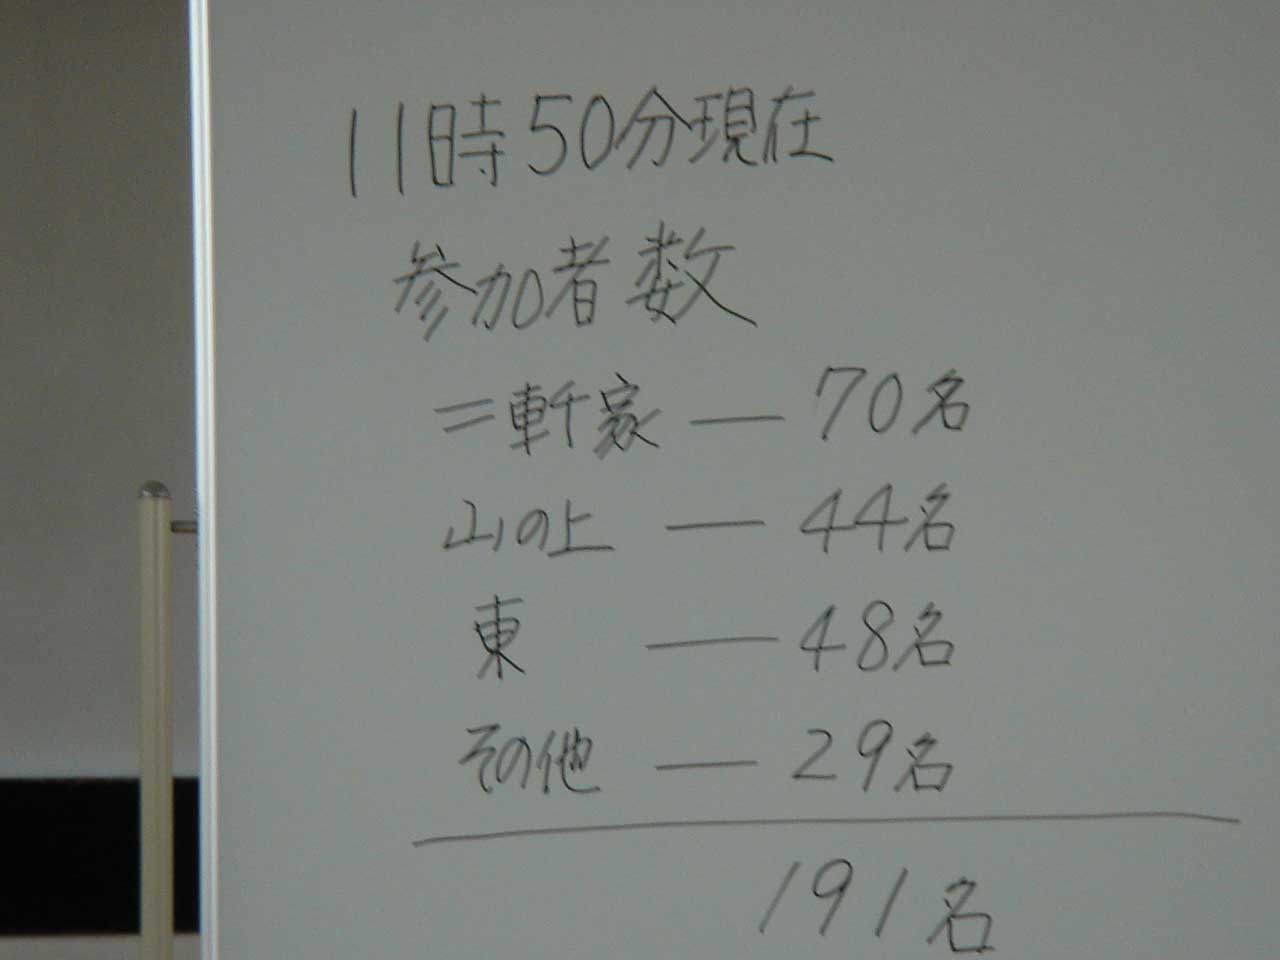 11時50分現在
参加者数
二軒家 — 70名
山の上 — 44名
東 — 48名
その他 — 29名
191名